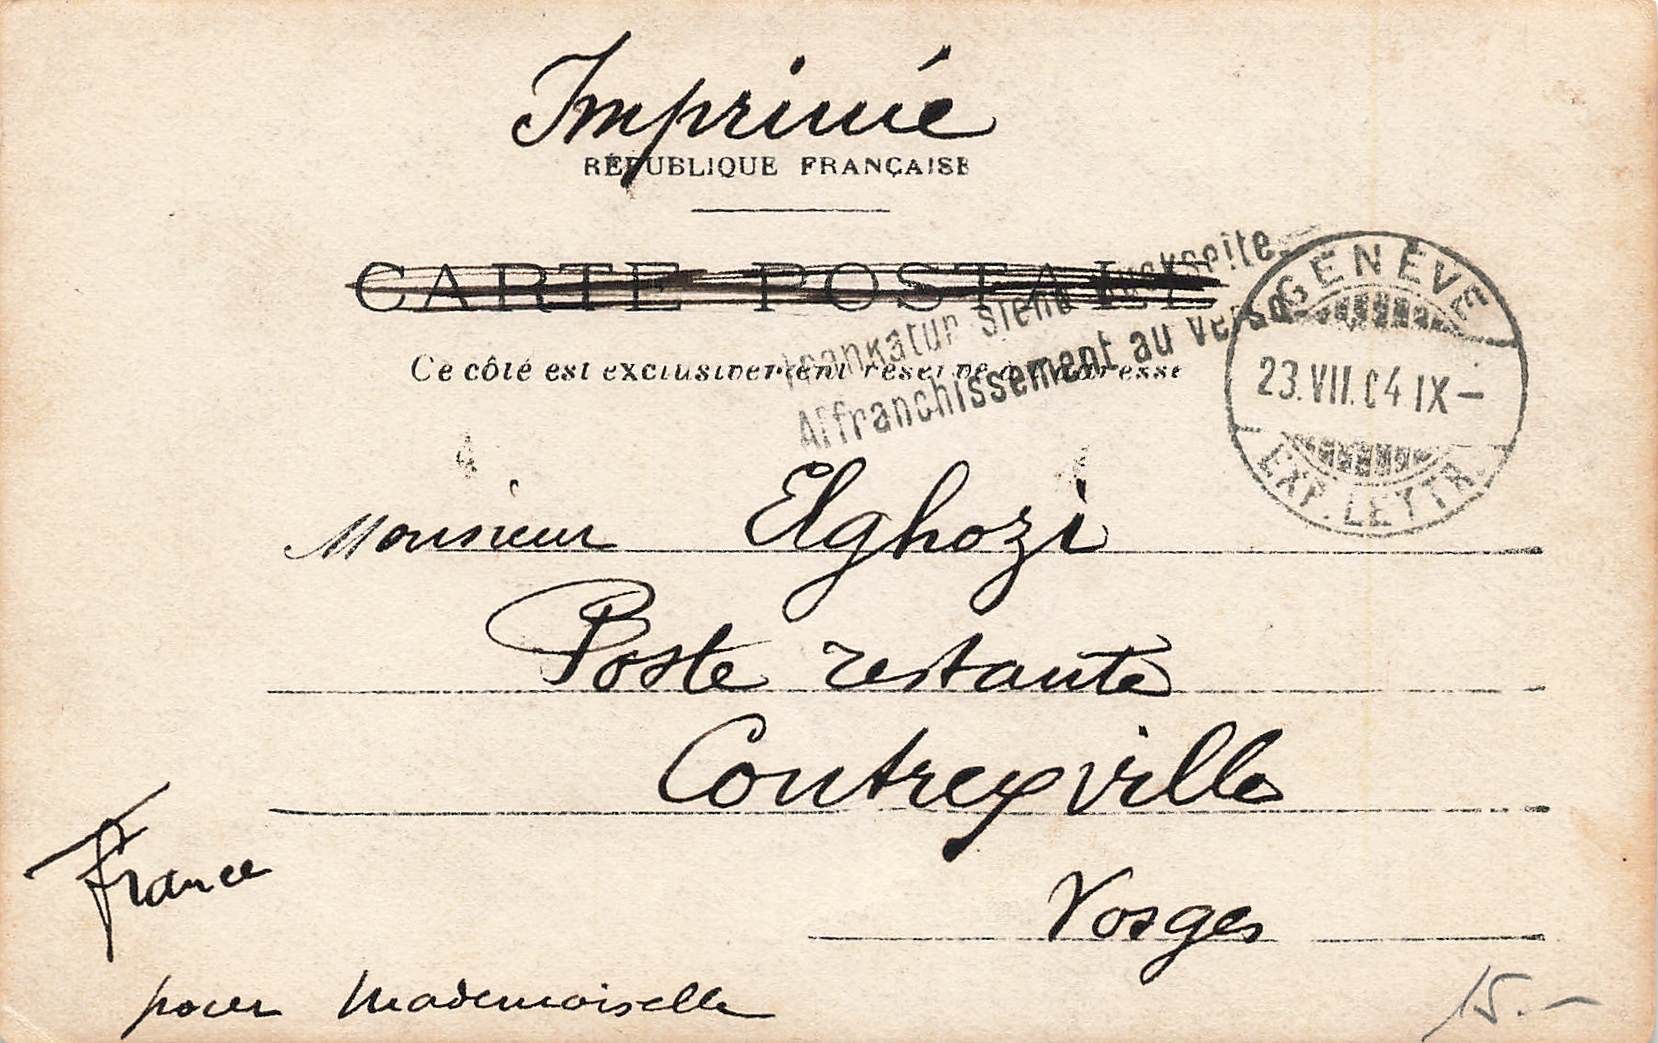 Imprimé
RÉPUBLIQUE FRANÇAISE
CARTE POSTALE
Frankatur siehe Rückseite
Affranchissement au verso
Ce côté est exclusivement réservé à l'adresse
GENÈVE
23.VII.04.IX–
EXP. LETTR.
Monsieur Elghozi
Poste restante
Contrexville
Vosges
France
pour Mademoiselle
15.–